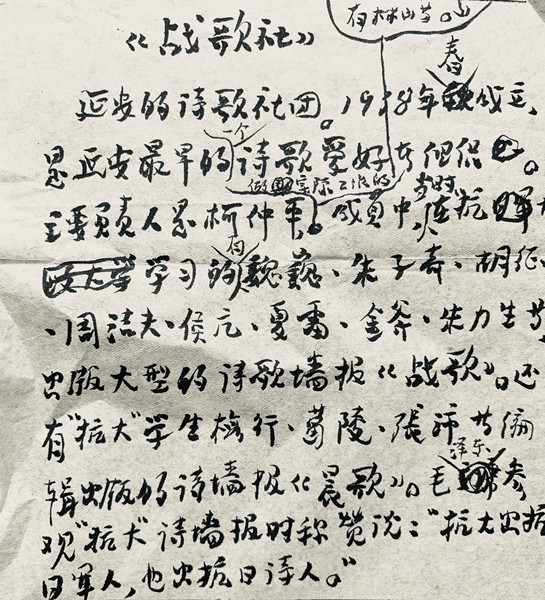 有林山等。
《战歌社》
春
延安的诗歌社团。1938年成立,
一个
是延安最早的诗歌爱好者组织。
做实际工作的
当时
主要负责人是柯仲平。成员中在抗
学习的魏巍、朱子奇、胡征
有
、周洁夫、侯亢、夏雷、金斧、朱力生等
出版大型的诗歌墙报《战歌》。还
有"抗大"学生 、葛陵、张沛共编
泽东
辑出版的诗墙报《晨歌》。毛 参
观"抗大"诗墙报时称赞说:"抗大出抗
日军人,也出抗日诗人。"